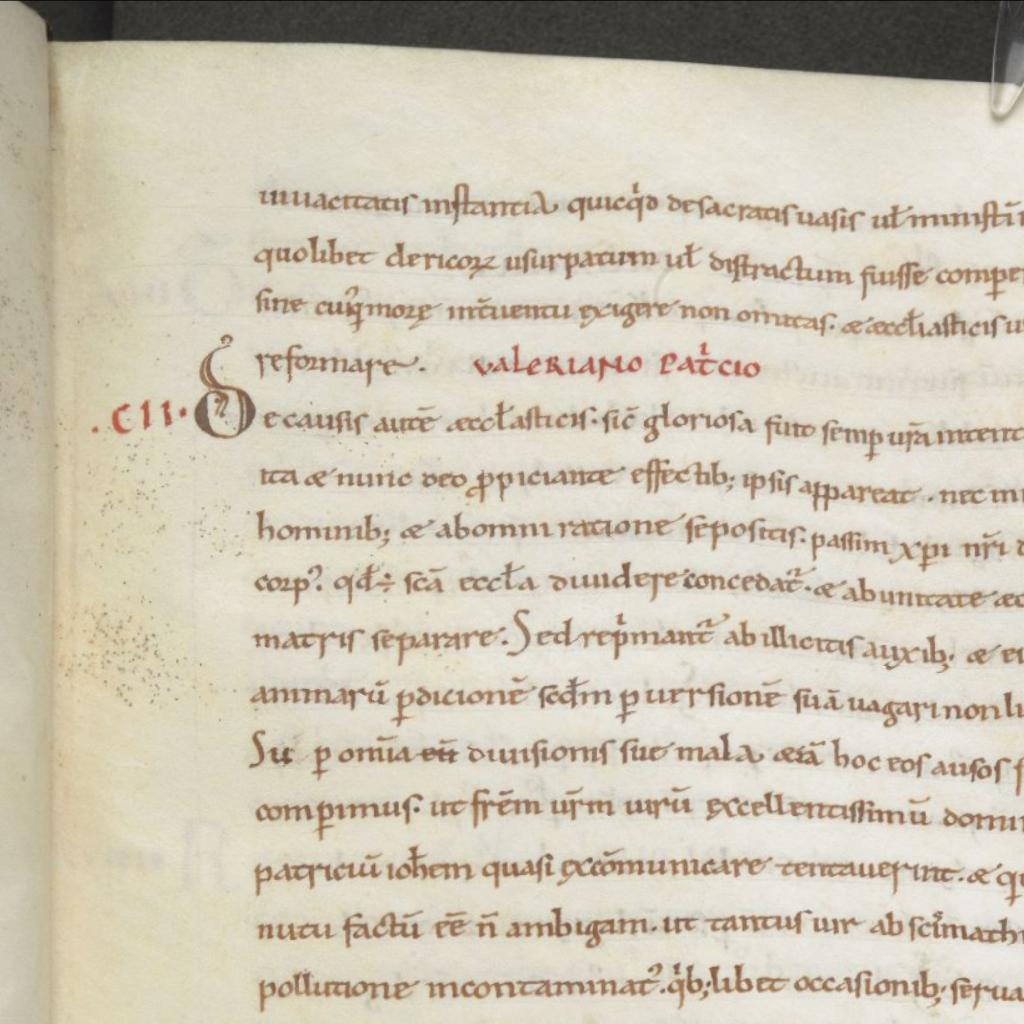 uiuacitatis instantia quicq̇d desacratis uasis ul̄ minist̄i
quolibet clericoꝝ usurpatum ul̄ distractum fuisse compe
sine cuiꝰq̇ morę int̄uentu exigere non omittas. & æccl̄iasticis u
reformare. VALERIANO PAT̊CIO
.CII. De causis autē æccl̄asticis. sic̄ gloriosa fuit semp ur̄a intent
ita & nunc deo ꝓpiciante effectib; ipsis appareat. nec in
hominib; & abomni ratione sepositis. passim xp̄i nr̄i
corpꝰ. qd̄ ÷ sc̄a eccl̄a diuidere concedat᷑. & ab unitate æc
matris separare. Sed rep̍mant᷑ ab illicitis auxib; & ei
animarū ꝑdicionē scd̄m ꝑuersionē suā uagari non li
Sic ꝑ omīa diuisionis sue mala &iā hoc eos ausos f
comꝑimus. ut fr̄em ur̄m uirū excellentissimū domi
patriciū ioh̄em quasi excōmunicare tentauerint. & q
nutu factū eē n̄ ambigam. ut tantus uir ab sc̍smath
pollutione incontaminatꝰ. q̍b;libet occasionib; serua